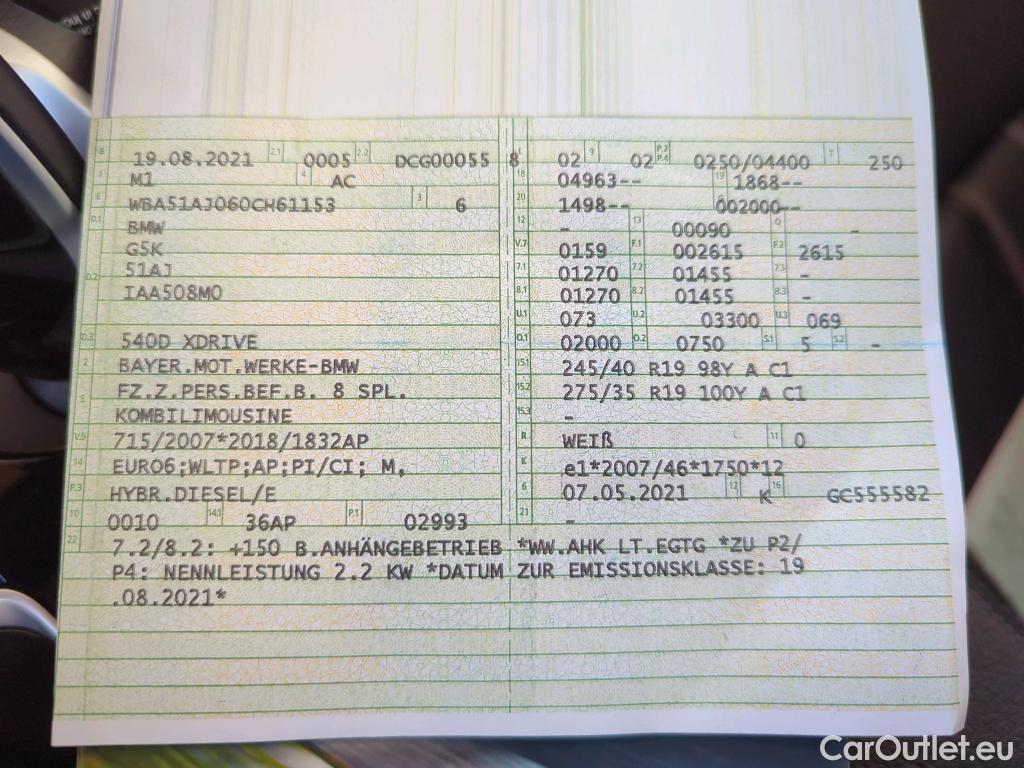 B 19.08.2021 2.1 0005 2.2 DCG00055 8
L 02 9 02 P.2 P.4 0250/04400 T 250
J M1 4 AC
18 04963-- 19 1868--
E WBA51AJ060CH61153 3 6
20 1498-- 002000--
D.1 BMW
12 - 13 00090 Q -
G5K
V.7 0159 F.1 002615 F.2 2615
D.2 51AJ
7.1 01270 7.2 01455 7.3 -
IAA508M0
8.1 01270 8.2 01455 8.3 -
U.1 073 U.2 03300 U.3 069
D.3 540D XDRIVE
O.1 02000 O.2 0750 S.1 5 S.2 -
2 BAYER.MOT.WERKE-BMW
15.1 245/40 R19 98Y A C1
5 FZ.Z.PERS.BEF.B. 8 SPL.
15.2 275/35 R19 100Y A C1
KOMBILIMOUSINE
15.3 -
V.9 715/2007*2018/1832AP
R WEIß 11 0
14 EURO6;WLTP;AP;PI/CI; M,
K e1*2007/46*1750*12
P.3 HYBR.DIESEL/E
6 07.05.2021 17 K 16 GC555582
10 0010 14.1 36AP P.1 02993
21 -
22 7.2/8.2: +150 B.ANHÄNGEBETRIEB *WW.AHK LT.EGTG *ZU P2/
P4: NENNLEISTUNG 2.2 KW *DATUM ZUR EMISSIONSKLASSE: 19
.08.2021*
CarOutlet.eu